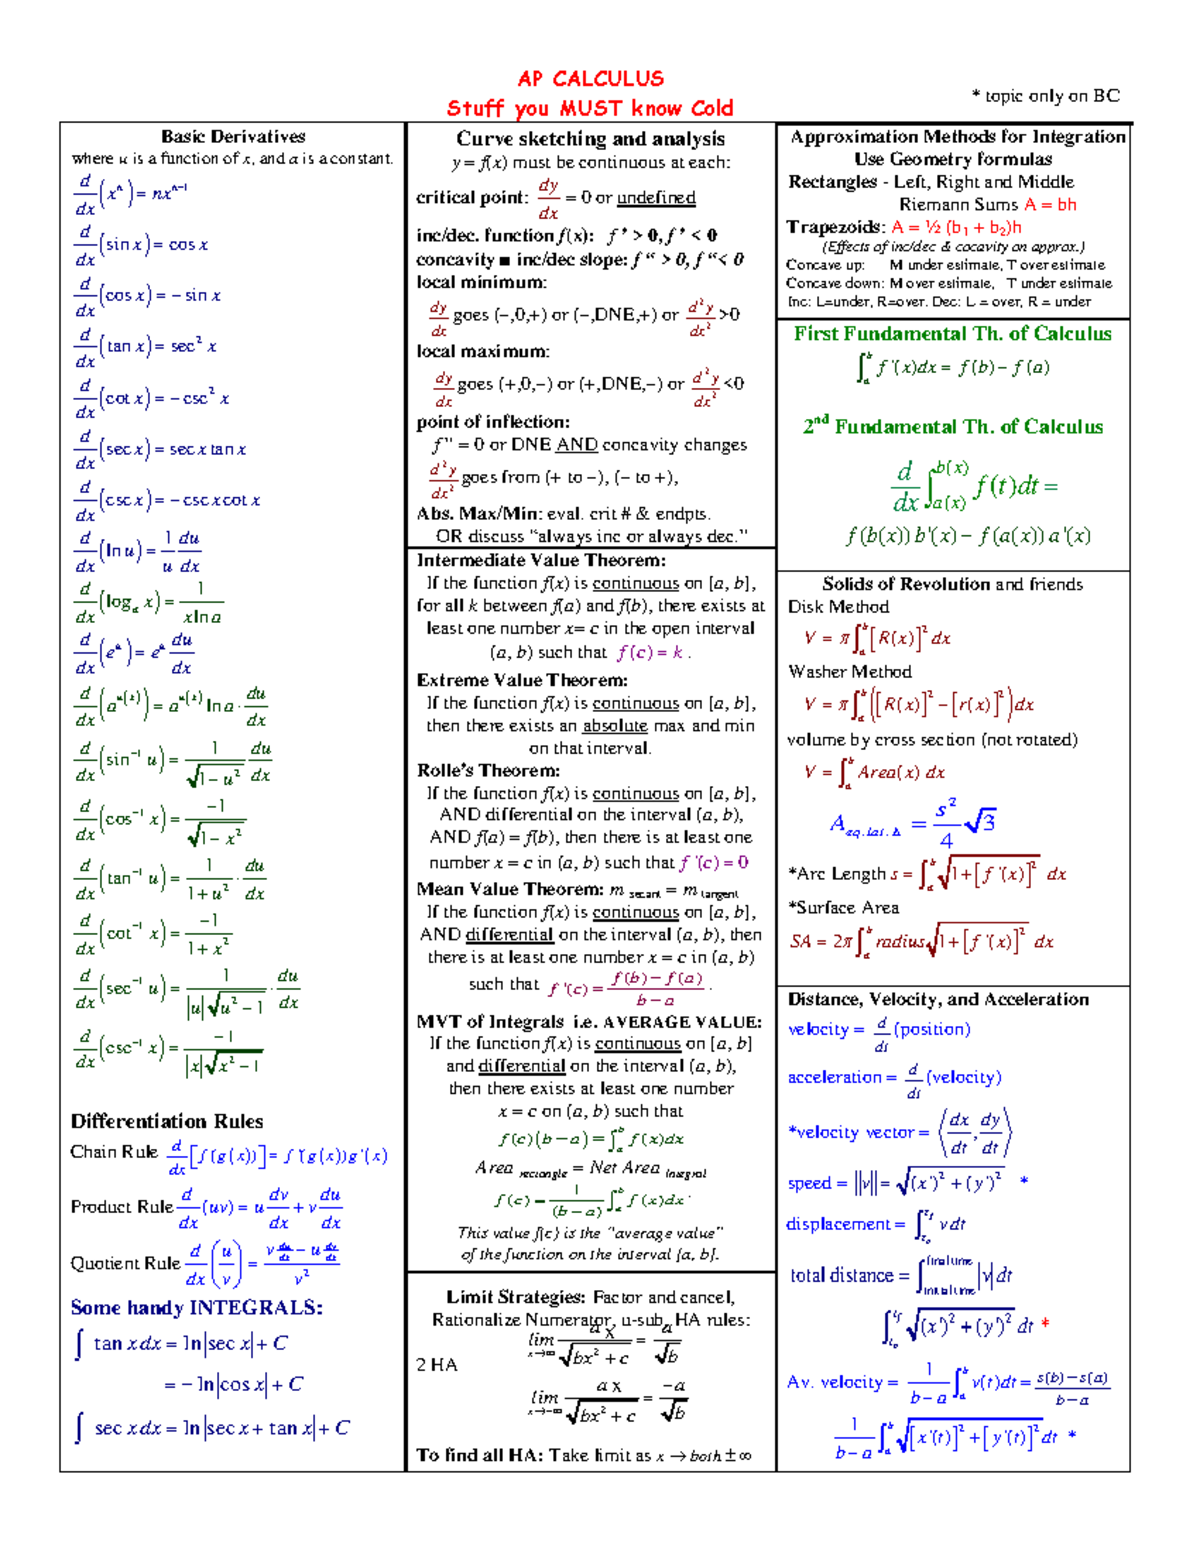 AP CALCULUS
Stuff you MUST know Cold
* topic only on BC
Basic Derivatives
where u is a function of x, and a is a constant.
d/dx (xⁿ) = nxⁿ⁻¹
d/dx (sin x) = cos x
d/dx (cos x) = − sin x
d/dx (tan x) = sec² x
d/dx (cot x) = − csc² x
d/dx (sec x) = sec x tan x
d/dx (csc x) = − csc x cot x
d/dx (ln u) = 1/u du/dx
d/dx (logₐ x) = 1/(x ln a)
d/dx (eᵘ) = eᵘ du/dx
d/dx (a^u(x)) = a^u(x) ln a · du/dx
d/dx (sin⁻¹ u) = 1/√(1 − u²) du/dx
d/dx (cos⁻¹ x) = −1/√(1 − x²)
d/dx (tan⁻¹ u) = 1/(1 + u²) · du/dx
d/dx (cot⁻¹ x) = −1/(1 + x²)
d/dx (sec⁻¹ u) = 1/(|u|√(u² − 1)) · du/dx
d/dx (csc⁻¹ x) = −1/(|x|√(x² − 1))
Differentiation Rules
Chain Rule d/dx [f(g(x))] = f '(g(x))g '(x)
Product Rule d/dx (uv) = u dv/dx + v du/dx
Quotient Rule d/dx (u/v) = (v du/dx − u dv/dx)/v²
Some handy INTEGRALS:
∫ tan x dx = ln|sec x| + C
= − ln|cos x| + C
∫ sec x dx = ln|sec x + tan x| + C
Curve sketching and analysis
y = f(x) must be continuous at each:
critical point: dy/dx = 0 or undefined
inc/dec. function f(x): f ' > 0, f ' < 0
concavity ■ inc/dec slope: f “ > 0, f “< 0
local minimum:
dy/dx goes (−,0,+) or (−,DNE,+) or d²y/dx² >0
local maximum:
dy/dx goes (+,0,−) or (+,DNE,−) or d²y/dx² <0
point of inflection:
f " = 0 or DNE AND concavity changes
d²y/dx² goes from (+ to −), (− to +),
Abs. Max/Min: eval. crit # & endpts.
OR discuss “always inc or always dec.”
Intermediate Value Theorem:
If the function f(x) is continuous on [a, b],
for all k between f(a) and f(b), there exists at
least one number x= c in the open interval
(a, b) such that f(c) = k .
Extreme Value Theorem:
If the function f(x) is continuous on [a, b],
then there exists an absolute max and min
on that interval.
Rolle’s Theorem:
If the function f(x) is continuous on [a, b],
AND differential on the interval (a, b),
AND f(a) = f(b), then there is at least one
number x = c in (a, b) such that f '(c) = 0
Mean Value Theorem: m secant = m tangent
If the function f(x) is continuous on [a, b],
AND differential on the interval (a, b), then
there is at least one number x = c in (a, b)
such that f '(c) = (f(b) − f(a))/(b − a) .
MVT of Integrals i.e. AVERAGE VALUE:
If the function f(x) is continuous on [a, b]
and differential on the interval (a, b),
then there exists at least one number
x = c on (a, b) such that
f(c)(b − a) = ∫ₐᵇ f(x)dx
Area rectangle = Net Area integral
f(c) = 1/(b − a) ∫ₐᵇ f(x)dx .
This value f(c) is the “average value”
of the function on the interval [a, b].
Limit Strategies: Factor and cancel,
Rationalize Numerator, u-sub, HA rules:
2 HA
lim x→∞ a x/√(bx² + c) = a/√b
lim x→−∞ a x/√(bx² + c) = −a/√b
To find all HA: Take limit as x → both ± ∞
Approximation Methods for Integration
Use Geometry formulas
Rectangles - Left, Right and Middle
Riemann Sums A = bh
Trapezoids: A = ½ (b₁ + b₂)h
(Effects of inc/dec & cocavity on approx.)
Concave up: M under estimate, T over estimate
Concave down: M over estimate, T under estimate
Inc: L=under, R=over. Dec: L = over, R = under
First Fundamental Th. of Calculus
∫ₐᵇ f '(x)dx = f(b) − f(a)
2nd Fundamental Th. of Calculus
d/dx ∫a(x)^b(x) f(t)dt =
f(b(x)) b '(x) − f(a(x)) a '(x)
Solids of Revolution and friends
Disk Method
V = π∫ₐᵇ [R(x)]² dx
Washer Method
V = π∫ₐᵇ ([R(x)]² − [r(x)]²)dx
volume by cross section (not rotated)
V = ∫ₐᵇ Area(x) dx
A eq. lat. Δ = s²/4 √3
*Arc Length s = ∫ₐᵇ √(1+[f '(x)]²) dx
*Surface Area
SA = 2π∫ₐᵇ radius√(1+[f '(x)]²) dx
Distance, Velocity, and Acceleration
velocity = d/dt (position)
acceleration = d/dt (velocity)
*velocity vector = ⟨dx/dt, dy/dt⟩
speed = ||v|| = √((x')² + (y')²) *
displacement = ∫t₀^tf v dt
total distance = ∫initial time^final time |v| dt
∫t₀^tf √((x')² + (y')²) dt *
Av. velocity = 1/(b − a) ∫ₐᵇ v(t)dt = (s(b) − s(a))/(b − a)
1/(b − a) ∫ₐᵇ √([x'(t)]² + [y'(t)]²) dt *